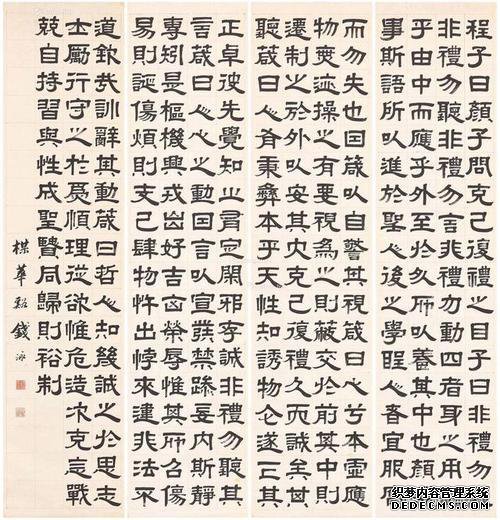 程子曰顏子問克己復禮之目子曰非禮勿視
非禮勿聽非禮勿言非禮勿動四者身之用也
乎由中而應乎外制於外所以養其中也顏淵
事斯語所以進於聖人後之學聖人者宜服膺
而勿失也因箴以自警其視箴曰心兮本虛應
物無迹操之有要視為之則蔽交於前其中則
遷制之於外以安其內克己復禮久而誠矣其
聽箴曰人有秉彝本乎天性知誘物化遂亡其
正卓彼先覺知止有定閑邪存誠非禮勿聽其
言箴曰人心之動因言以宣發禁躁妄內斯靜
專矧是樞機興戎出好吉凶榮辱惟其所召傷
易則誕傷煩則支己肆物忤出悖來違非法不
道欽哉訓辭其動箴曰哲人知幾誠之於思志
士勵行守之於為順理從欲惟危造次克念戰
兢自持習與性成聖賢同歸則裕制
楳華谿錢泳
织梦内容管理系统
DEDECMS.COM